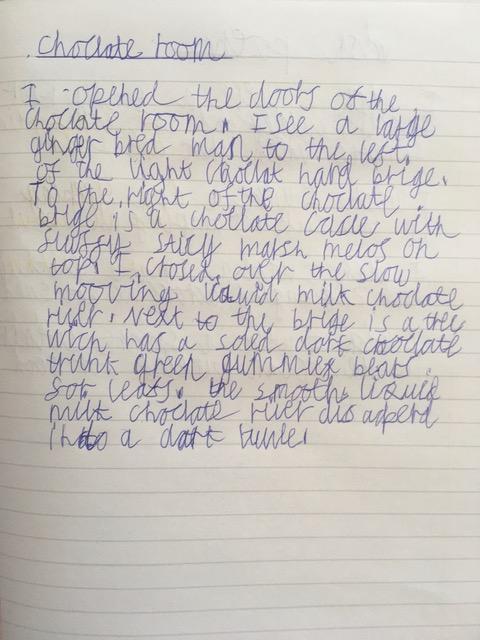 . choclate room
I opened the doors of the
choclate room. I see a large
ginger bred man to the left
of the light choclat hard brige.
To the right of the choclate
brige is a choclate cake with
fluffy sticy marsh melos on
top. I crosed over the slow
mooving liquid milk choclate
river. Next to the brige is a tree
wich has a soled dark choclate
trunk green gummiex bears
for leafs. the smooth liquid
milk choclate river dis a perd
into a dark tunle.